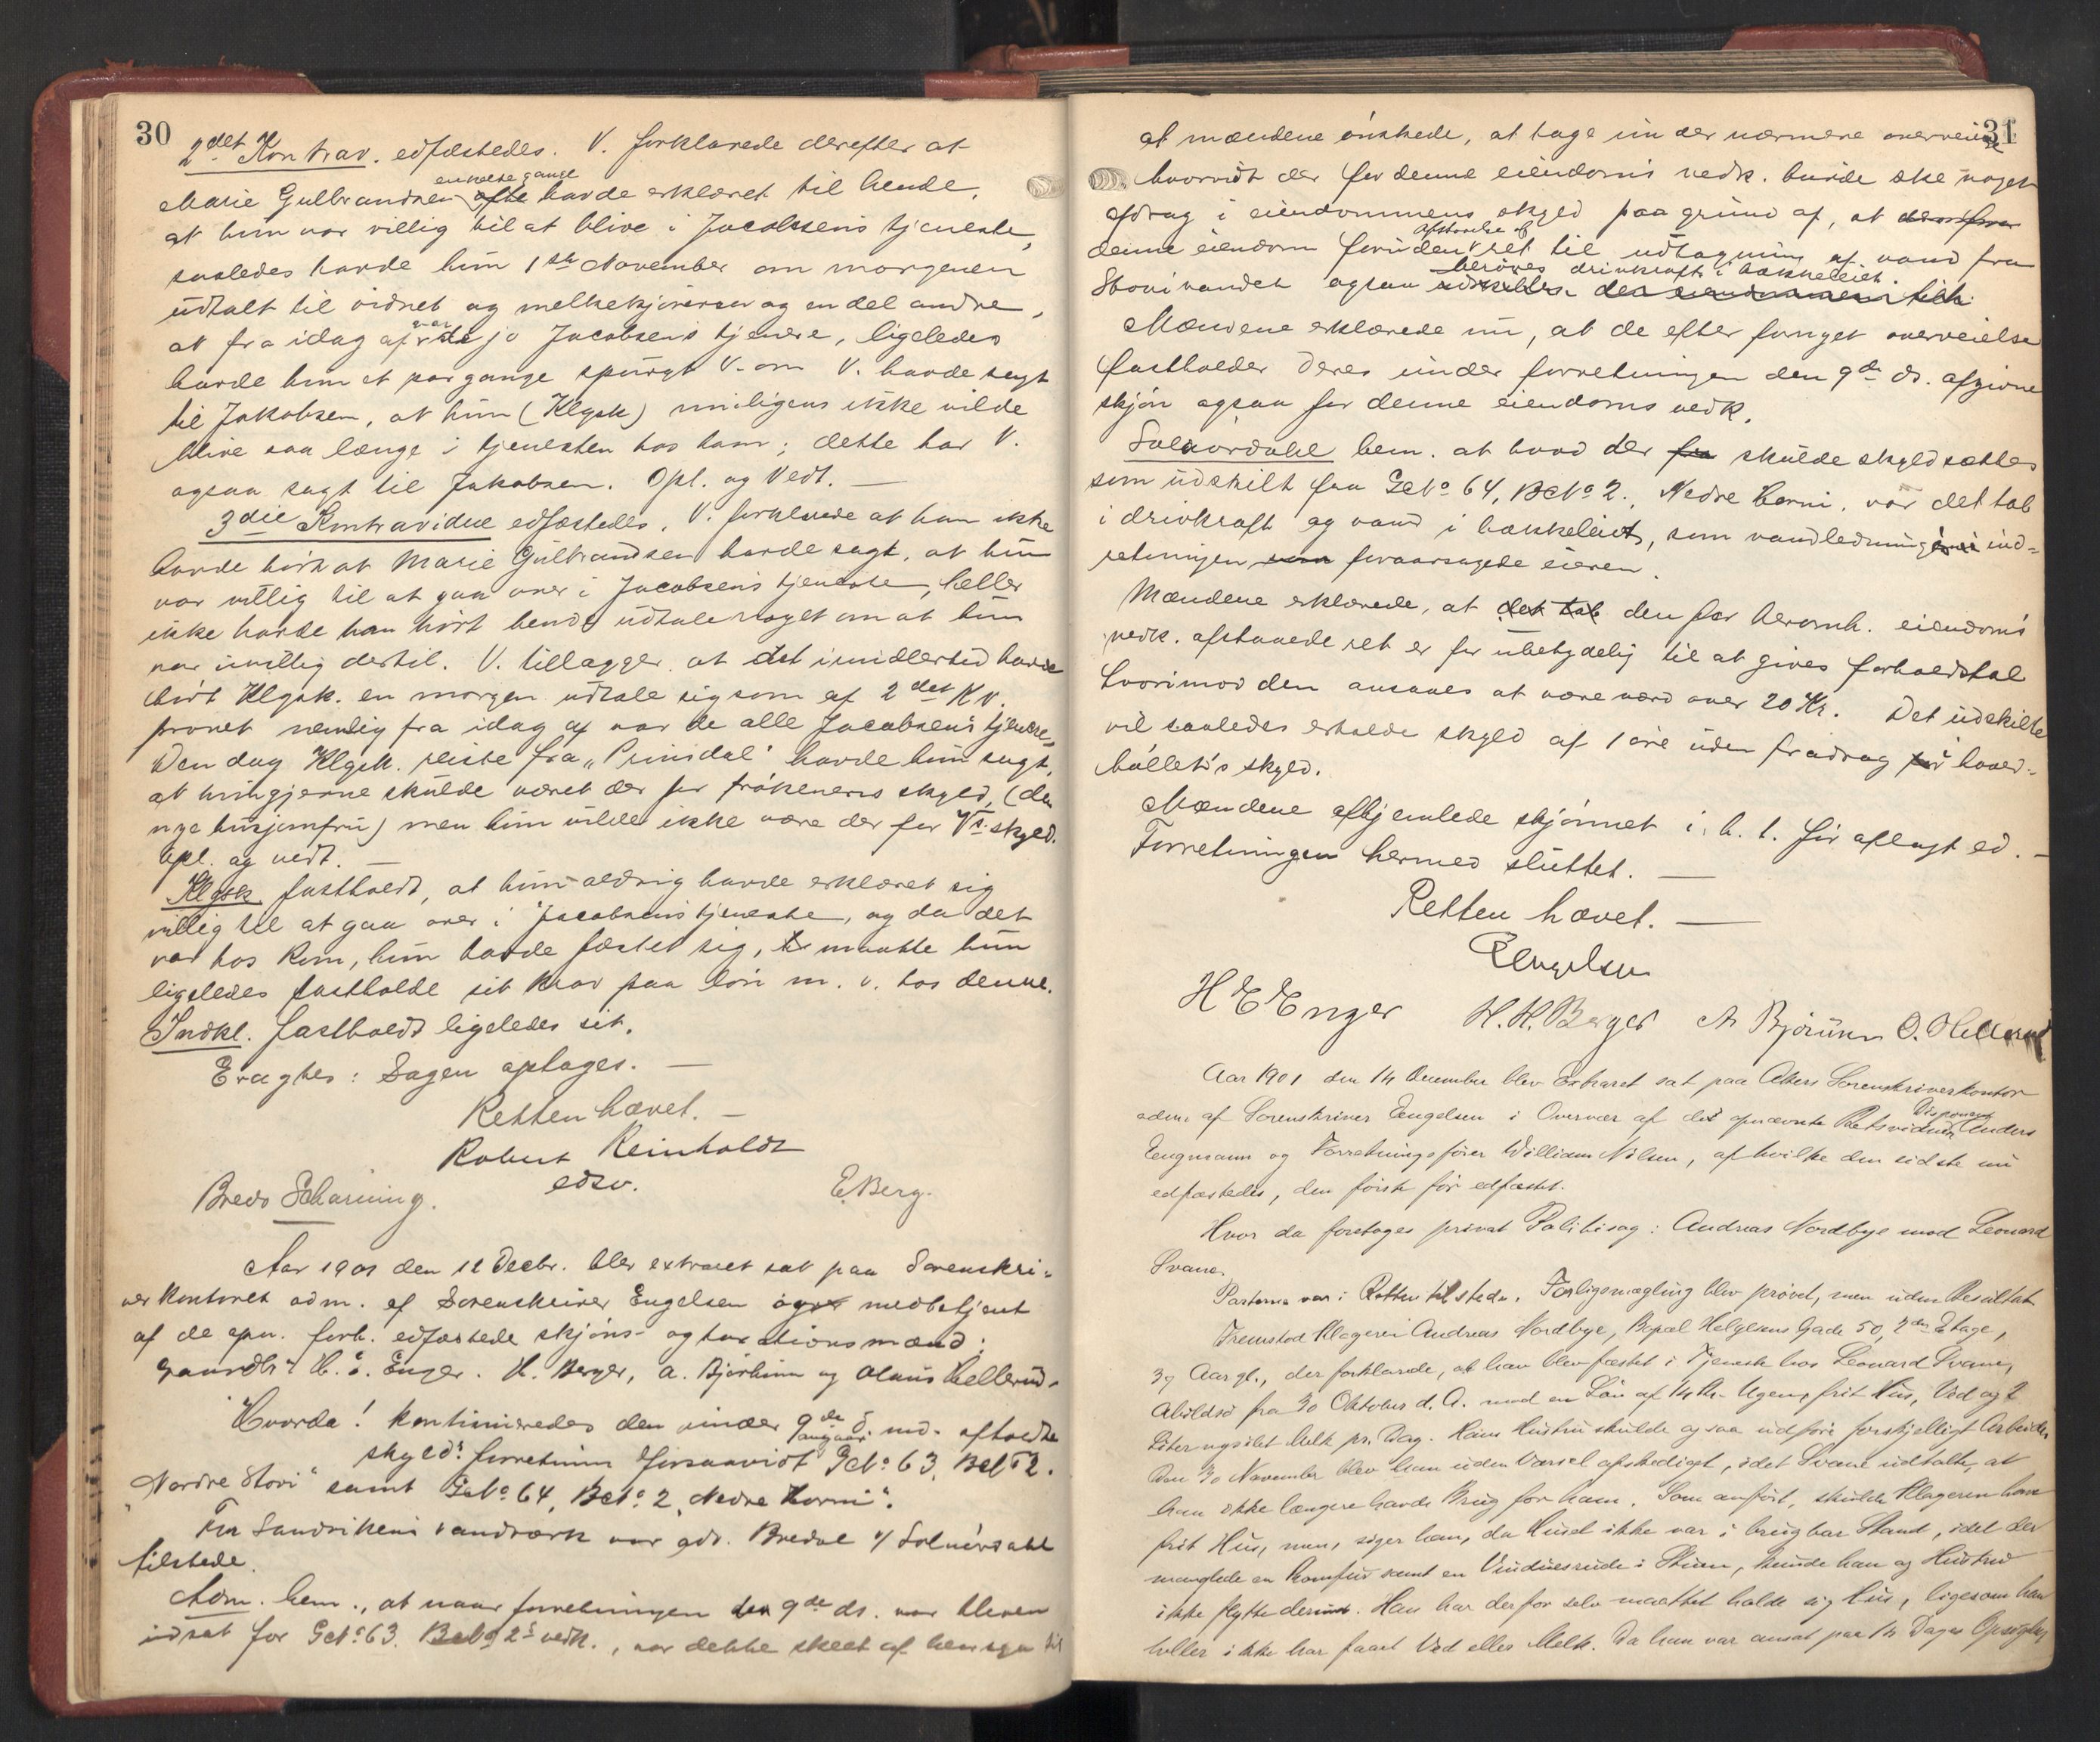 30
2det Kontrav. edfæstedes. V. forklarede derefter at
enkelte gange
Marie Gulbrandsen ofte havde erklæret til hende,
at hun var villig til at blive i Jacobsens tjeneste,
saaledes havde hun 1ste November om morgenen
udtalt til vidnet og melkekjøreren og en del andre,
at fra idag af var de jo Jacobsens tjenere, ligeledes
havde hun et par gange spurgt V. om V. havde sagt
til Jakobsen, at hun (Klgsk) muligens ikke vilde
blive saa længe i tjenesten hos ham; dette har V.
ogsaa sagt til Jakobsen. Opl. og Vedt. —
3die Kontravidne edfæstedes. V. forklarede at han ikke
havde hørt at Marie Gulbrandsen havde sagt, at hun
var villig til at gaa over i Jacobsens tjeneste, heller
ikke havde han hørt hende udtale noget om at hun
var uvillig dertil. V. tillægger at det imidlertid havde
hørt Klgsk. en morgen udtale sig som af 2det KV.
provet nemlig fra idag af var de alle Jacobsens tjenere,
Den dag Klgsk. reiste fra „Prinsdal" havde hun sagt,
at hun gjerne skulde været der for frøkenens skyld, (den
nye husjomfru) men hun vilde ikke være der for Vs. skyld.
Opl. og vedt. —
Klgsk fastholdt, at hun aldrig havde erklæret sig
villig til at gaa over i Jacobsens tjeneste, og da det
var hos Rom, hun havde fæstet sig, maatte hun
ligeledes fastholde sit krav paa løn m. v. hos denne.
Indkl. fastholdt ligeledes sit.
Eragtes: Sagen optages. —
Retten hævet. —
Robert Reinholdt
edsv.
Bredo Scharning. E. Berg.
Aar 1901 den 12 Decbr. blev extraret sat paa Sorenskri-
verkontoret adm. af Sorenskriver Engelsen og medbetjent
af de opn. forh. edfæstede skjøns- og taxationsmænd:
Gaardbr. H. E. Enger. H. Berger, A. Bjørhum og Olaus Hellerud.
Hvorda! kontinueredes den under 9de d. md. afholdte
skyld. forretning forsaavidt angaar Gcto 63, Bcto 2.
„Nordre Hovi" samt Gcto 64, Bcto 2 „Nedre Horni".
For Sandvikens vandværk var adv. Bredal v/ Solnørdahl
tilstede.
Adm. bem., at naar forretningen den 9de ds. var bleven
udsat for Gcto 63. Bcto 2s vedk., var dette skeet af hensyn til
31
at mændene ønskede, at tage under nærmere overveielse
hvorvidt der for denne eiendoms vedk. burde ske noget
afdrag i eiendommens skyld paa grund af, at
denne eiendom foruden afstaaelse af ret til udtagning af vand fra
Stovivandet ogsaa berøves drivkraft i bækkeleiet.
Mændene erklærede nu, at de efter fornyet overveielse
fastholder deres under forretningen den 9de ds. afgivne
skjøn ogsaa for denne eiendoms vedk.
Solnørdahl bem. at hvad der skulde skyldsættes
som udskilt fra Gcto 64, Bcto 2. Nedre Horni, var det tab
i drivkraft og vand i bækkeleiet, som vandledningens ind-
retningen foraarsagede eieren.
Mændene erklærede, at det tab den for heromh. eiendoms
vedk. afstaaede ret er for ubetydelig til at gives forholdstal
hvorimod den ansaaes at være værd over 20 Kr. Det udskilte
vil saaledes erholde skyld af 1 øre uden fradrag i hoved-
bøllets skyld.
Mændene afhjemlede skjønnet i. h. t. før aflagt ed. —
Forretningen hermed sluttet. —
Retten hævet. —
Engelsen
H E Enger H. H. Berger A Bjørum O. Hellerud
Aar 1901 den 14 December blev Extraret sat paa Akers Sorenskriverkontor
adm. af Sorenskriver Engelsen i Overvær af de opnævnte Retsvidner Disponent Anders
Eengmann og Forretningsfører William Nilsen, af hvilke den sidste nu
edfæstedes, den første før edfæstet.
Hvor da foretages privat Politisag: Andreas Nordbye mod Leonard
Svane.
Parterne var i Retten tilstede. Forligsmægling blev prøvet, men uden Resultat.
Fremstod Klageren Andreas Nordbye, Bopæl Helgesens Gade 50, 2den Etage,
39 Aar gl., der forklarede, at han blev fæstet i Tjeneste hos Leonard Svane,
Abildsø fra 30 Oktober d. A. med en Løn af 14 Kr. Ugen, frit Hus, Ved og 2
Liter nysilet Melk pr. Dag. Hans Hustru skulde ogsaa udføre forskjelligt Arbeide.
Den 30 November blev han uden Varsel afskediget, idet Svane udtalte, at
han ikke længere havde Brug for ham. Som anført, skulde Klageren have
frit Hus, men, siger han, da Huset ikke var i brugbar Stand, idet der
manglede en Komfur samt en Vinduesrude i Stuen, kunde han og Hustru
ikke flytte derind. Han har derfor selv maattet holde sig Hus, ligesom han
heller ikke har faaet Ved eller Melk. Da han var ansat paa 14 Dages Opsigelse